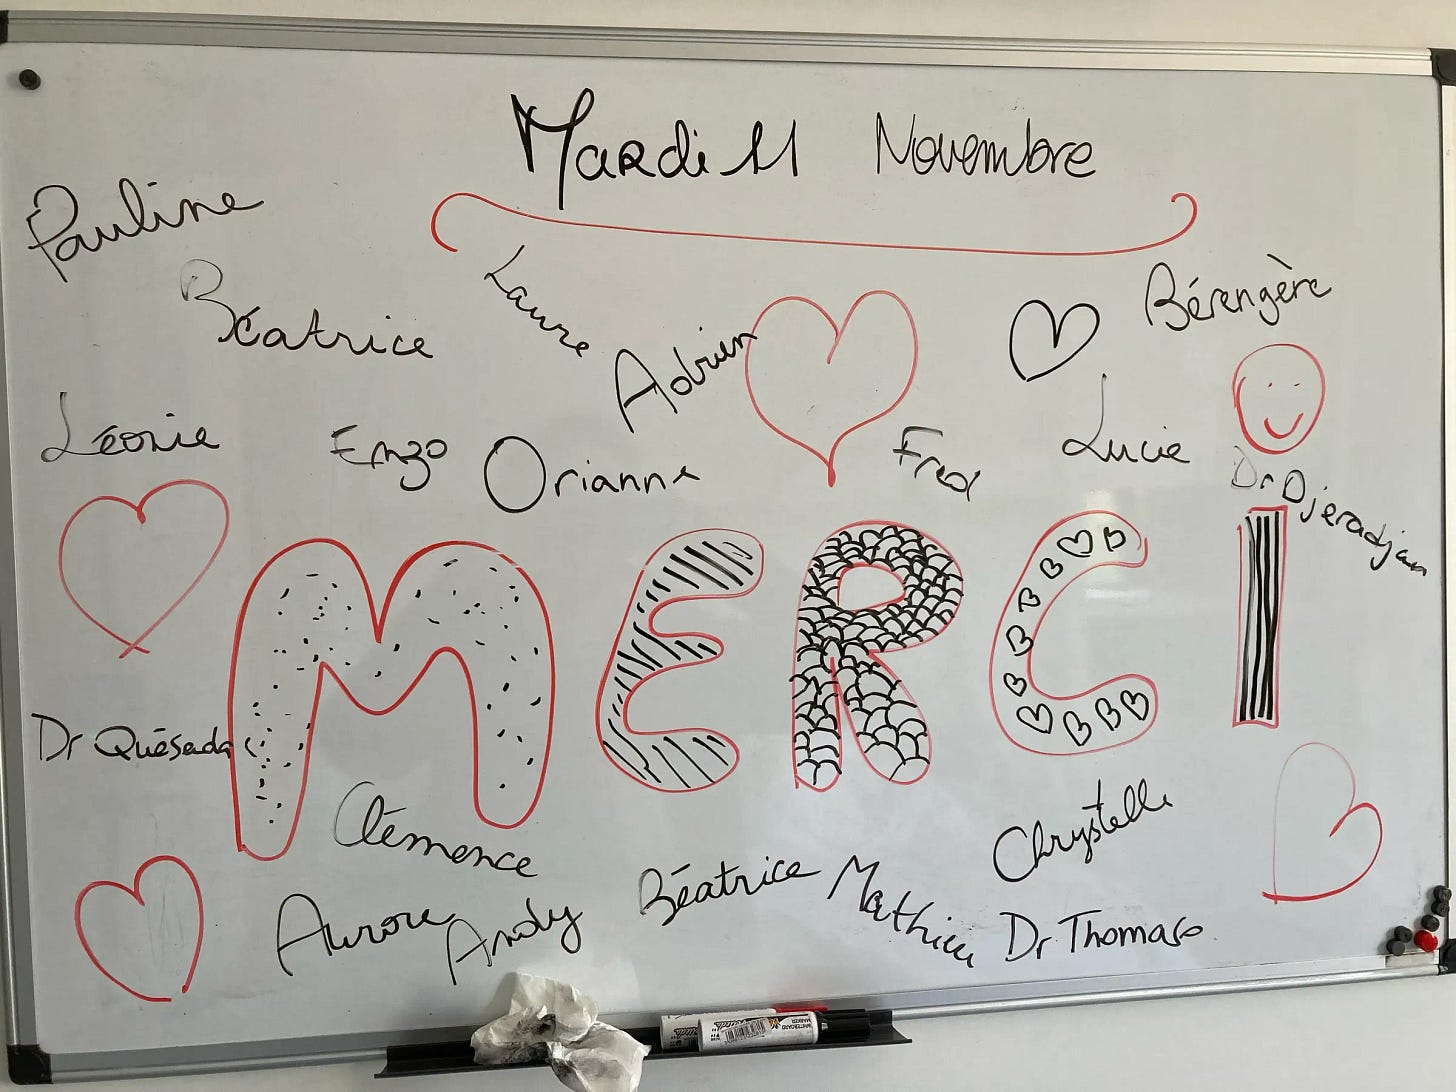 Mardi 11 Novembre
Pauline
Béatrice
Laure
Adrien
Bérengère
Léonie
Enzo
Orianne
Fred
Lucie
Dr Djeradjian
MERCI
Dr Quésada
Clémence
Chrystelle
Aurore
Andy
Béatrice
Mathieu
Dr Thomaso
WHITEBOARD
MARKER